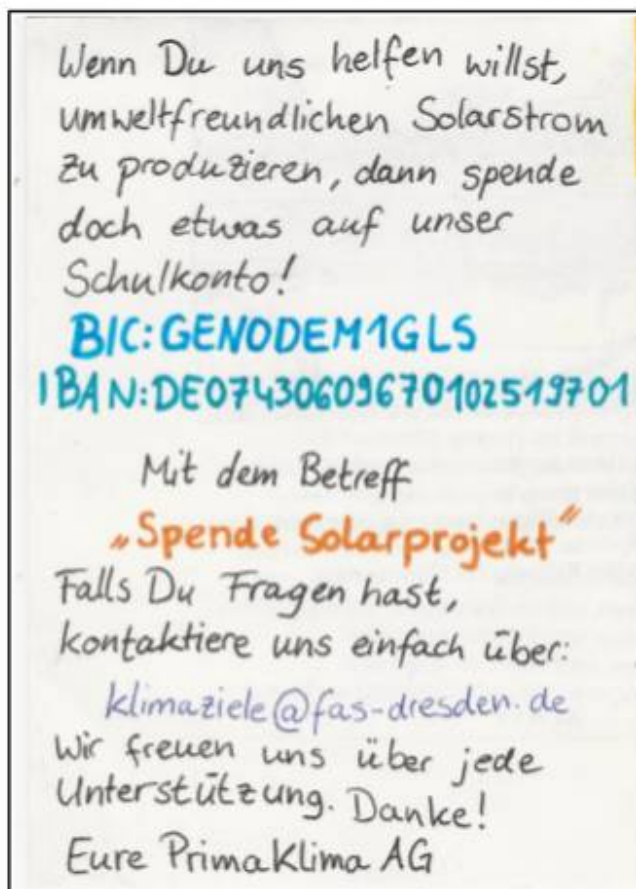 Wenn Du uns helfen willst,
umweltfreundlichen Solarstrom
zu produzieren, dann spende
doch etwas auf unser
Schulkonto!
BIC:GENODEM1GLS
IBAN:DE07430609670102519701
Mit dem Betreff
„Spende Solarprojekt“
Falls Du Fragen hast,
kontaktiere uns einfach über:
klimaziele@fas-dresden.de
Wir freuen uns über jede
Unterstützung. Danke!
Eure PrimaKlima AG